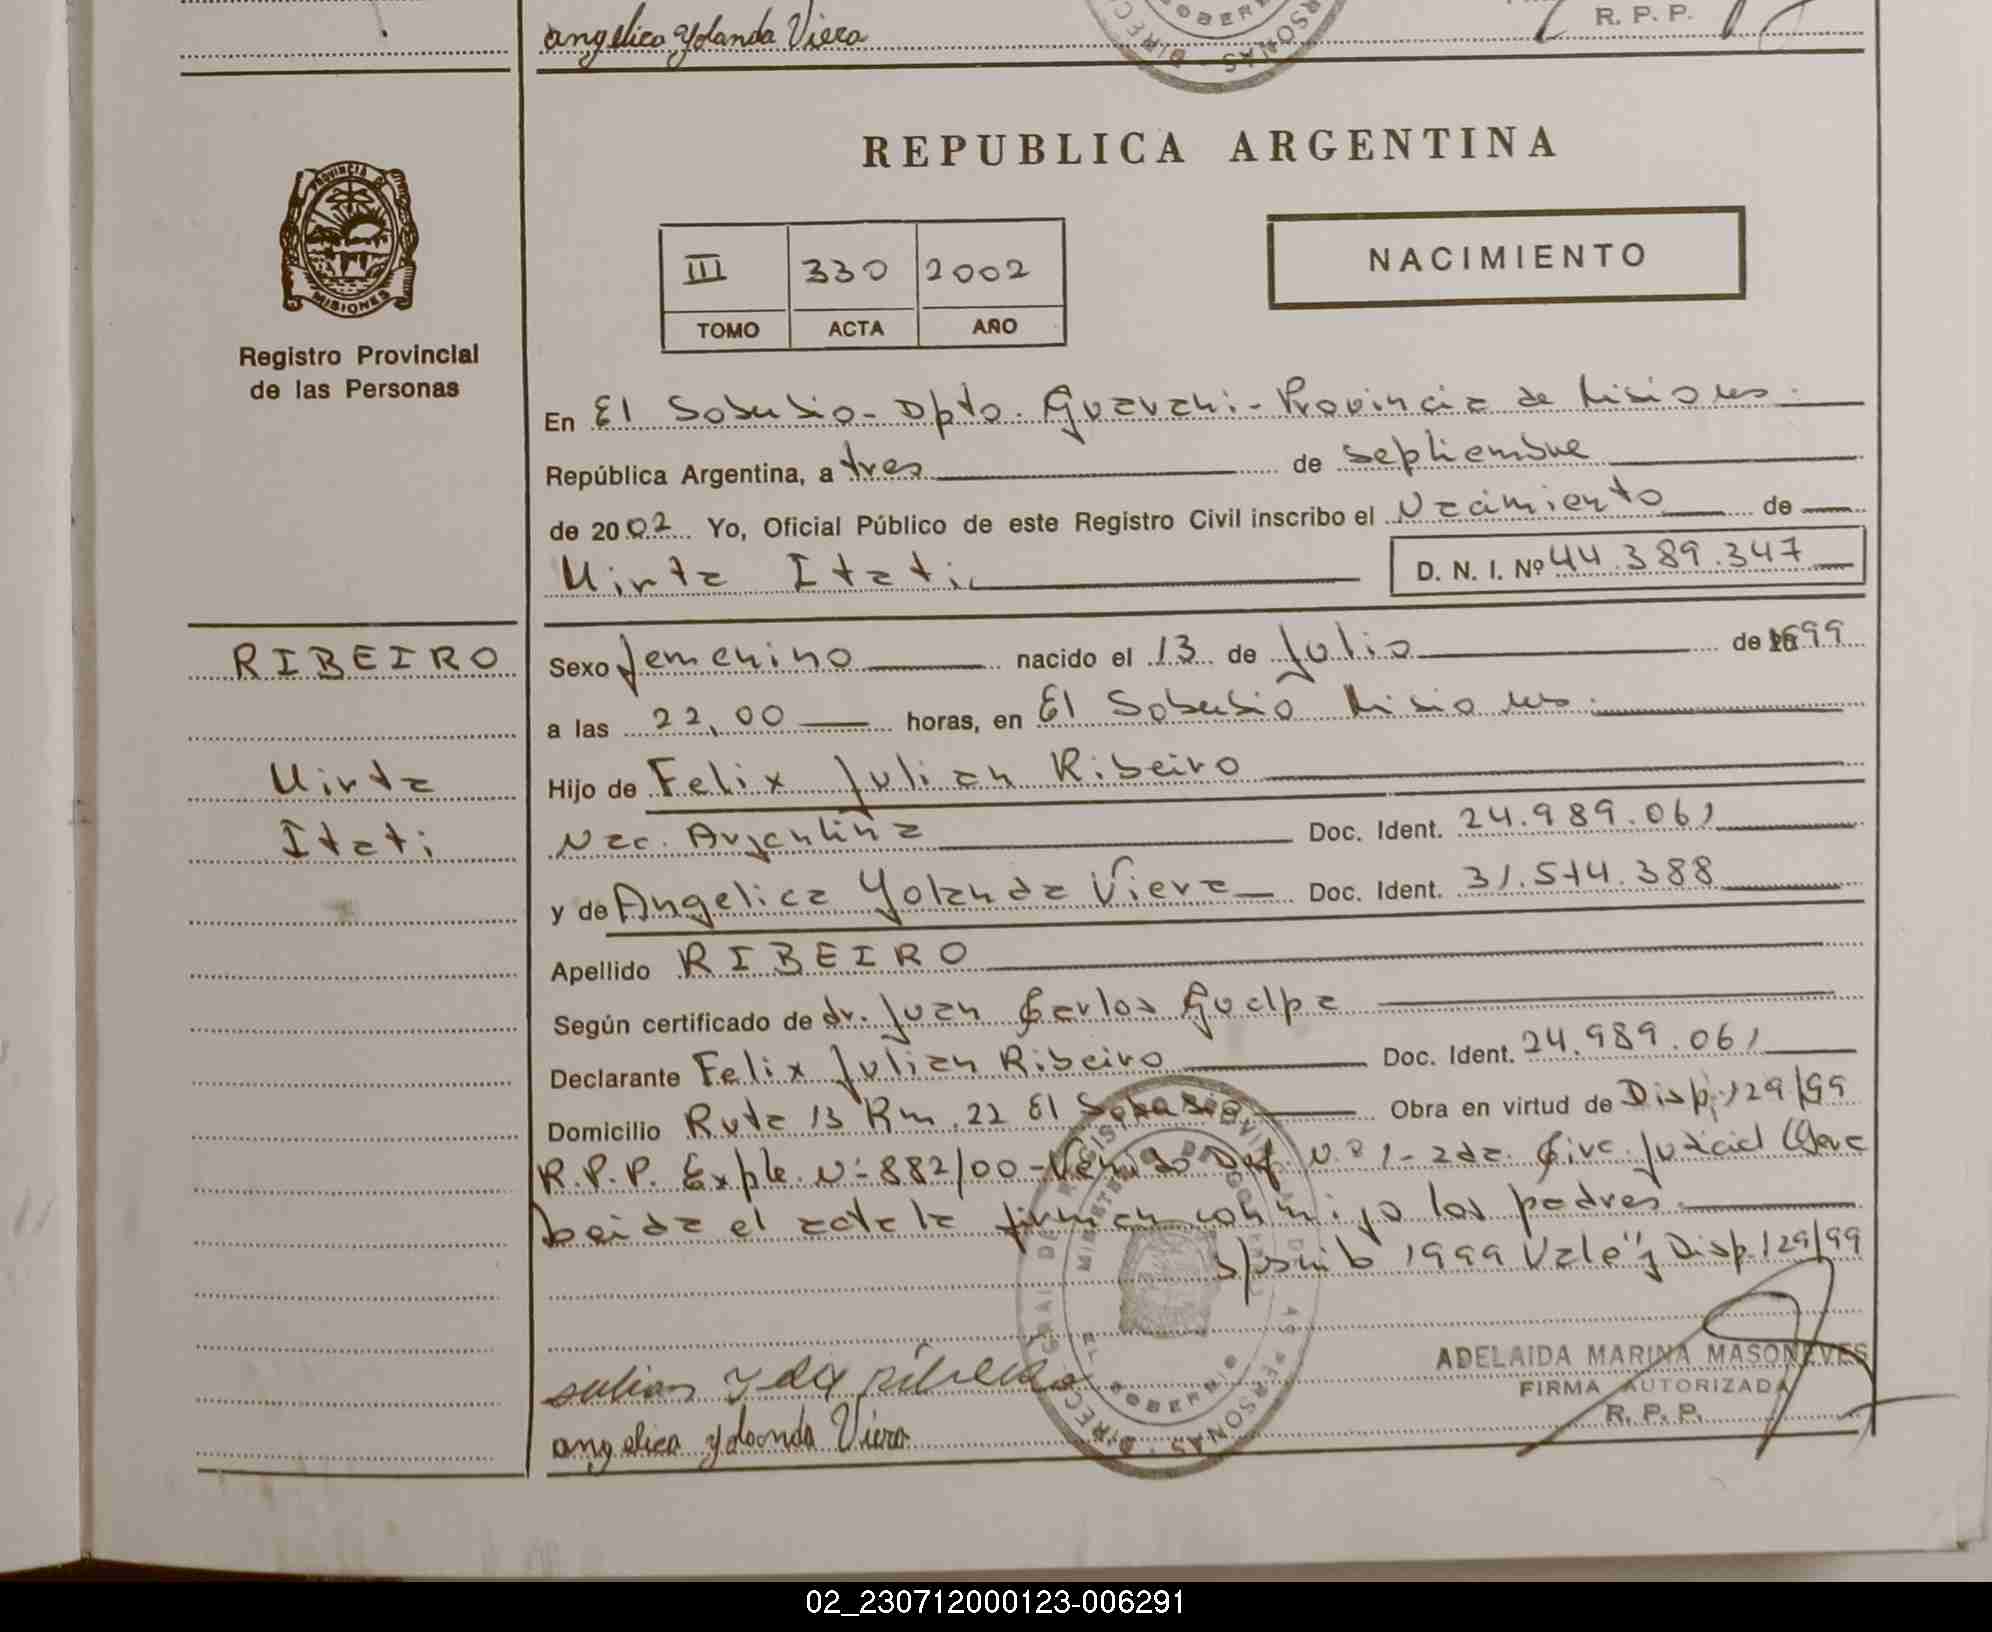 angelica Yolanda Viera
R. P. P.
REPUBLICA ARGENTINA
PROVINCIA DE
MISIONES
Registro Provincial
de las Personas
III 330 2002
TOMO ACTA AÑO
NACIMIENTO
En El Soberbio - Dpto. Guarani - Provincia de Misiones.
República Argentina, a tres de septiembre
de 2002 Yo, Oficial Público de este Registro Civil inscribo el Nacimiento de
Mirta Itati D. N. I. Nº 44.389.347
RIBEIRO
Mirta
Itati
Sexo femenino nacido el 13 de Julio de 1999
a las 22,00 horas, en El Soberbio Misiones.
Hijo de Felix Julian Ribeiro
Nac. Argentina Doc. Ident. 24.989.061
y de Angelica Yolanda Viera Doc. Ident. 31.514.388
Apellido RIBEIRO
Según certificado de dr. Juan Carlos Gualpa
Declarante Felix Julian Ribeiro Doc. Ident. 24.989.061
Domicilio Ruta 13 Km. 22 El Soberbio Obra en virtud de Disp. 129/99
R.P.P. Expte. Nº 882/00 - Def. Nº 1 - 2da. Circ. Judicial
el acta la firman conmigo los padres.
1999 Vale" y Disp. 129/99
angelica yolonda Viera
ADELAIDA MARINA MASONEVES
FIRMA AUTORIZADA
R. P. P.
02_230712000123-006291